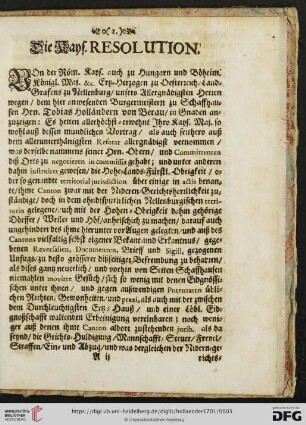 Die Kays. RESOLUTION.
VOn der Röm. Kays. auch zu Hungarn und Böheim,
Königl. Maj. &c. Ertz-Herzogen zu Oesterreich, Land-
Grafens zu Nellenburg/ unsers Allergnädigsten Herren
wegen/ dem hier anwesenden Burgermeistern zu Schaffhau-
sen Hrn. Tobias Holländern von Berau/ in Gnaden an-
zuzeigen: Es hetten allerhöchst-ernehnt Ihro Kays. Maj. so
wohl auß dessen mundlichen Vortrag/ als auch seithero auß
dem allerunterthänigsten Referat allergnädigst vernommen/
was derselbe nammens seiner Hrn. Obern/ und Committenten
diß Orts zu negotieren in commissis gehabt; und unter anderen
dahin instruiert gewesen/ die Hohe-Lands-Fürstl. Obrigkeit/ o-
der so genandte territorial jurisdiction über einige in actis benan-
te/ ihme Canton zwar mit der Nidern-Gerichtsherrlichkeit zu-
ständige/ doch in dem
gelegene/ und mit der Hohen-Obrigkeit dahin gehörige
Dörffer/ Weiler und Höf/
ungehindert des ihme hierunter vor Augen gelegten/ und auß des
Cantons vielfältig selbst eigener Bekant- und Erkantnus/ gege-
benen Reversalien, Documenten, Brieff und Sigill, gezogenen
Unfugs/ zu desto grösserer dißseitiger Befrembdung zu beharren/
als dises gantz neuerlich/ und vorhin von Seiten Schaffhausen
niemahlen movierte Gesuch/ sich so wenig mit denen Eydgnößi-
schen unter ihnen/ und gegen außwendigen Potentaten übli-
chen Rechten, Gewonheiten/ und praxi, als auch mit der zwischen
dem Durchleuchtigsten Ertz-Hauß/ und einer Löbl. Eid-
gnoßschafft waltenden Erbeinigung vereinbaren; noch weni-
ger auß denen ihme Canton alldort zustehenden jurib. als da
seynd/ die Grichts-Huldigung/ Mannschafft, Steur/ Frevel/
Straffen/ Ein- und Abzug/ und was dergleichen der Nidern-ge-
A ij
richts-
https://digi.ub.uni-heidelberg.de/diglit/hollaender1701/0003
© Universitätsbibliothek Heidelberg